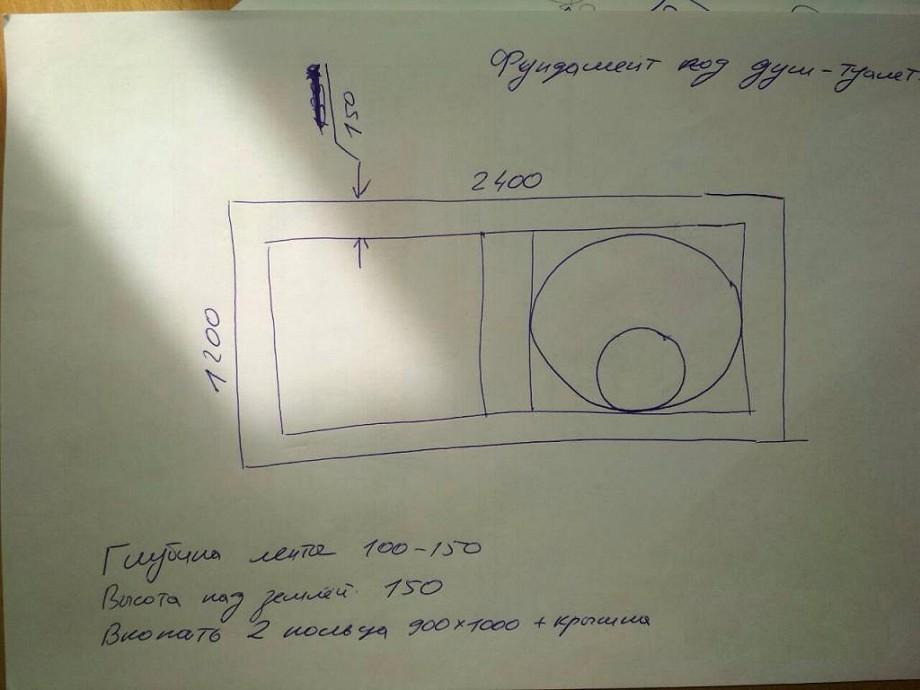 Фундамент под душ-туалет.
150
2400
1200
Глубина лента 100-150
Высота над землёй. 150
Вкопать 2 кольца 900×1000 + крышка